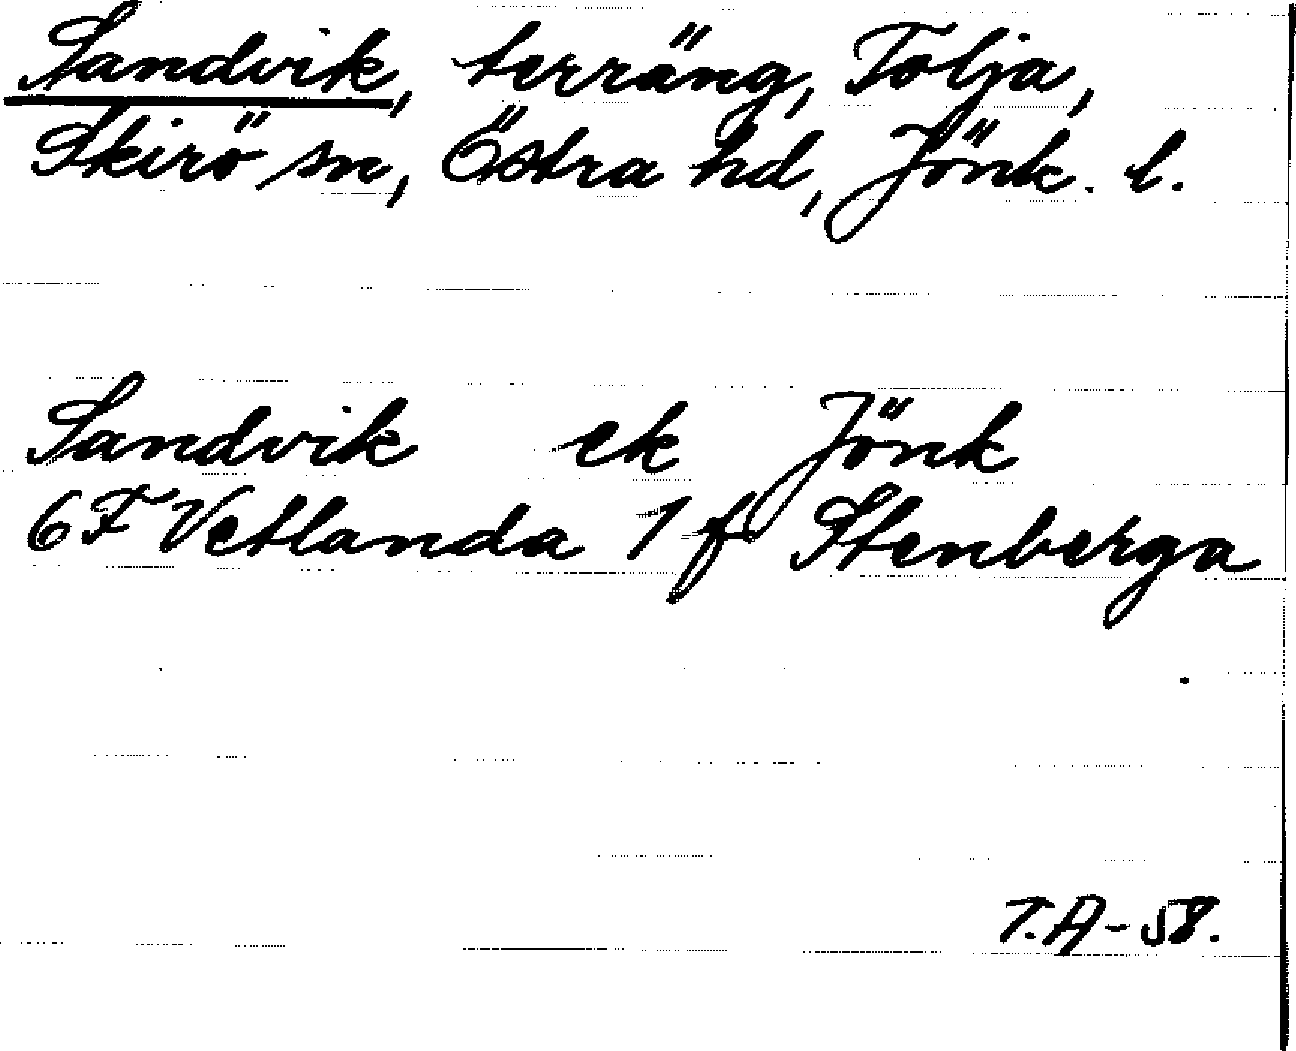 Sandvik, terräng, Tolja,
Skirö sn, Östra hd, Jönk. l.
Sandvik ek Jönk
6F Vetlanda 1 f Stenberga
T.A-58.